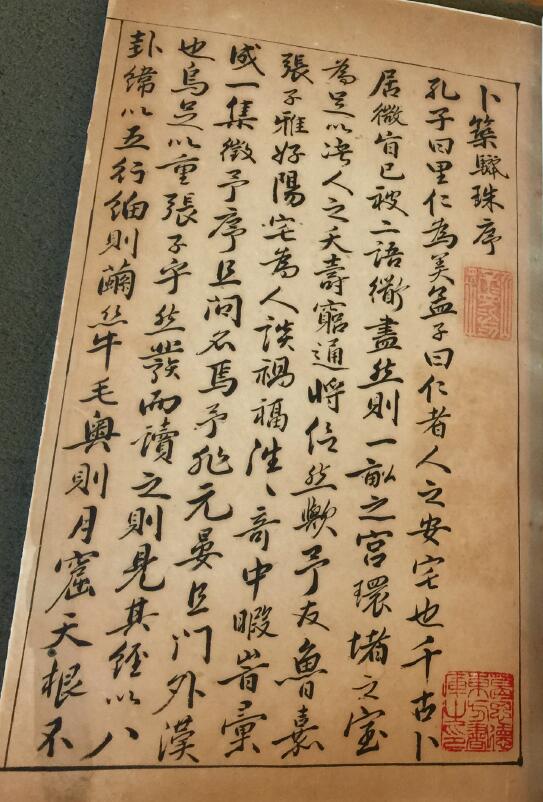 卜築驪珠序
孔子曰里仁為美孟子曰仁者人之安宅也千古卜
居微旨已被二語衜盡然則一畝之宮環堵之室
為足以决人之夭壽窮通將信然歟予友魯嘉
張子雅好陽宅為人談禍福往〻奇中暇嘗彙
成一集徵予序且問名焉予非元晏且門外漢
也烏足以重張子乎然發而讀之則見其經以八
卦緯以五行細則繭絲牛毛奧則月窟天根不
葛思德
東方書
庫之印